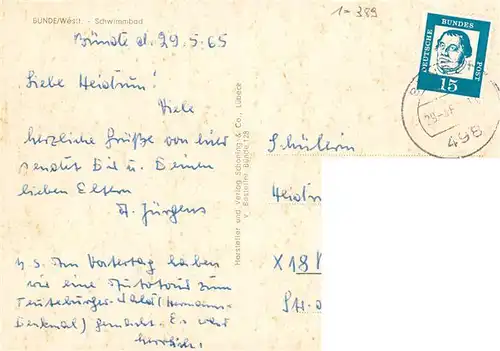 BÜNDE/Westf. - Schwimmbad
1=389
Bünde d. 29.5.65
Liebe Heidrun!
Viele
herzliche Grüße von hier
sendet Dir u. Deinen
lieben Eltern
A. Jürgens
N.S. Am Vatertag haben
wir eine Autotour zum
Teuteburger-Wald (Hermann-
Denkmal) gemacht. Es war
herrlich!
Hersteller und Verlag Schöning & Co., Lübeck
Bestellnr. Bünde 128
DEUTSCHE BUNDES POST
15
498
Schülerin
Heidrun
X 18
Str.